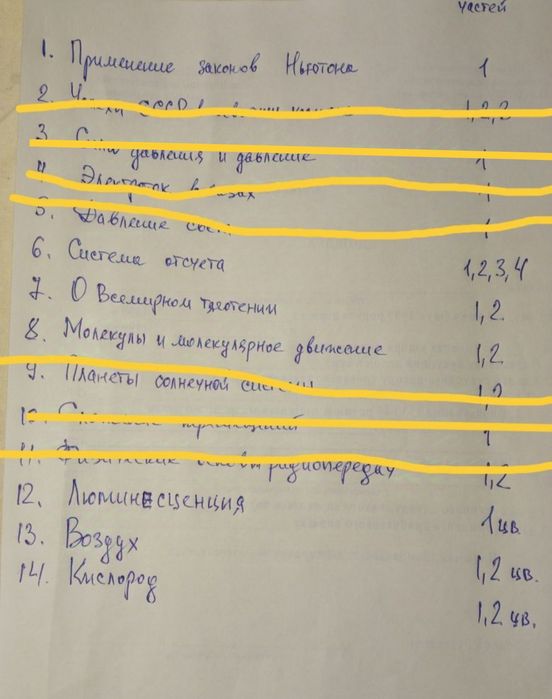 частей
1. Применение законов Ньютона 1
2. СССР 1,2,3
3. давления и давление 1
4. Электроток в газах 1
5. Давление 1
6. Система отсчета 1,2,3,4
7. О Всемирном тяготении 1,2.
8. Молекулы и молекулярное движение 1,2.
9. Планеты солнечной системы 1,2
10. 1
11. Физические основы радиопередач 1,2
12. Люминесценция 1 цв.
13. Воздух 1,2 цв.
14. Кислород 1,2 цв.